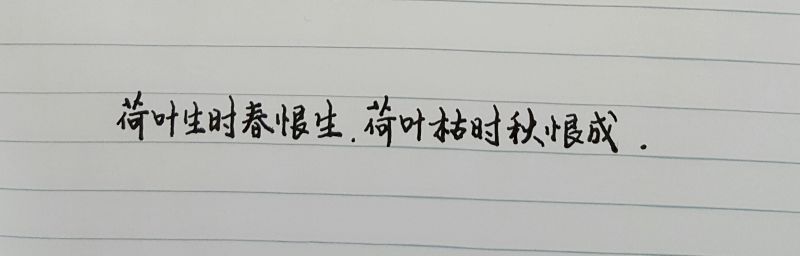 荷叶生时春恨生.荷叶枯时秋恨成.